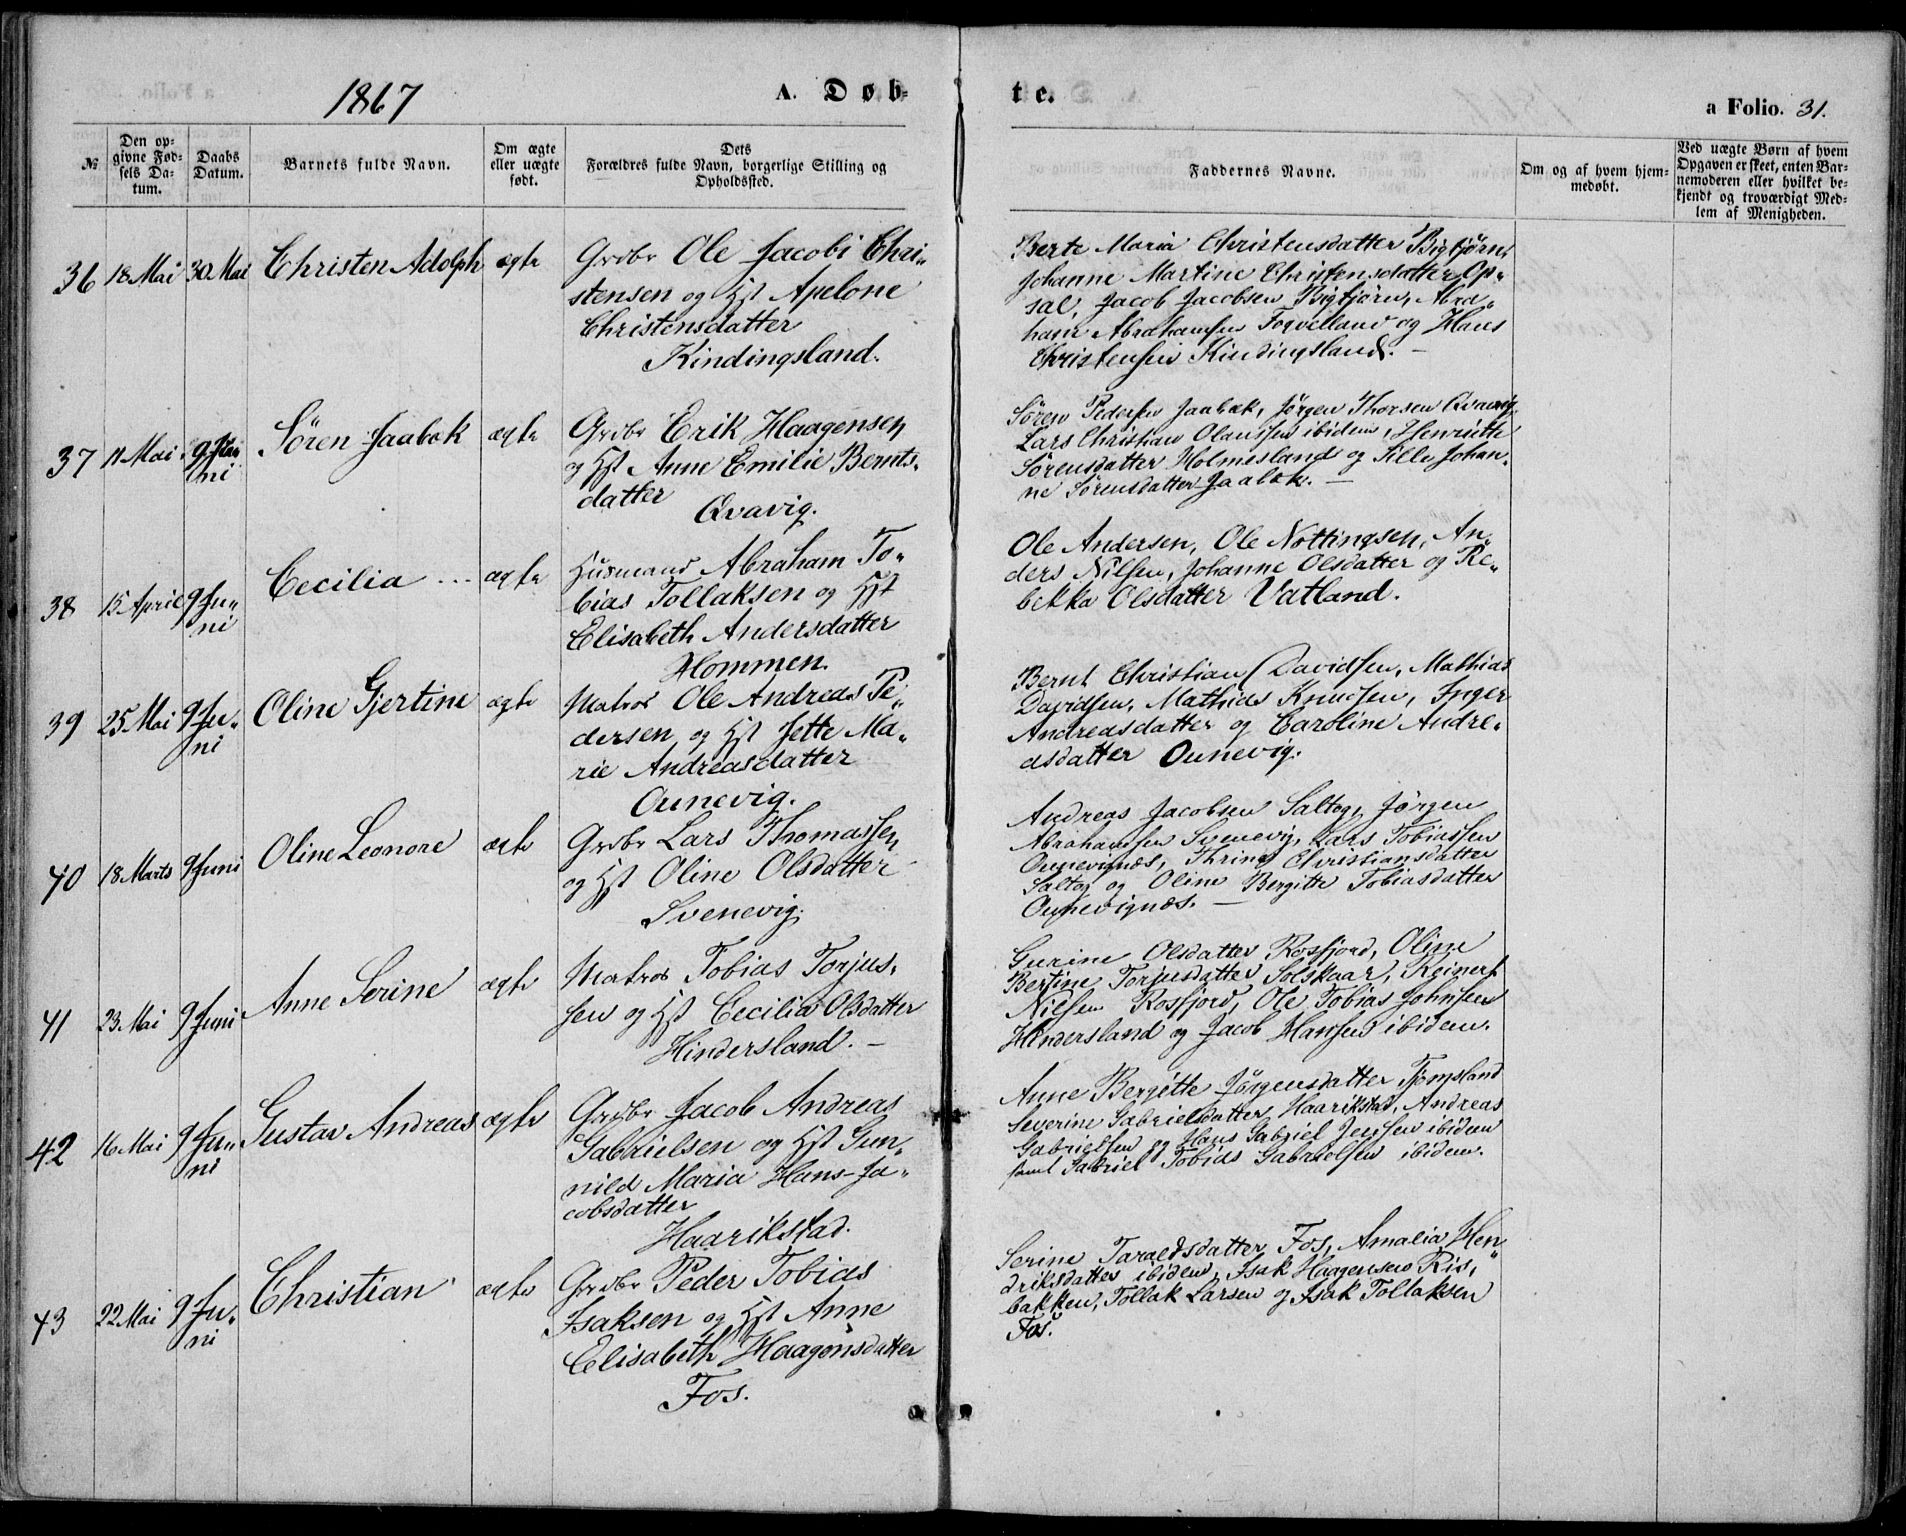 1867
A. Døb-
te.
a Folio. 31.
№
Den op-
givne Fød-
sels Da-
tum.
Daabs
Datum.
Barnets fulde Navn.
Om ægte
eller uægte
født.
Dets
Forældres fulde Navn, borgerlige Stilling og
Opholdssted.
Faddernes Navne.
Om og af hvem hjem-
medøbt.
Ved uægte Børn af hvem
Opgaven er skeet, enten Bar-
nemoderen eller hvilket be-
kjendt og troværdigt Med-
lem af Menigheden.
36 18 Mai 30 Mai Christen Adolph ægte
Grdbr Ole Jacobi Chri-
stensen og Hst Apelone
Christensdatter
Kindingsland.
Berte Maria Christensdatter Bigtjørn,
Johanne Martine Christensdatter Op-
sal, Jacob Jacobsen Bigtjørn, Abra-
ham Abrahamsen Foqvelland og Hans
Christensen Kindingsland. –
37 11 Mai 9 Ju-
ni
Søren Jaabæk ægte
Grdbr Erik Haagensen
og Hst Anne Emilie Bernts-
datter
Qvavig.
Søren Pedersen Jaabæk, Jørgen Thorsen Qvavig,
Lars Christian Olaussen ibidem, Henriette
Sørensdatter Holmesland og Sille Johan-
ne Sørensdatter Jaabæk. –
38 15 April 9 Ju-
ni
Cecilia ... ægte
Husmand Abraham To-
bias Tollaksen og Hst
Elisabeth Andersdatter
Hommen.
Ole Andersen, Ole Nottingsen, An-
ders Nilsen, Johanne Olsdatter og Re-
bekka Olsdatter Vatland.
39 25 Mai 9 Ju-
ni
Oline Gjertine ægte
Matros Ole Andreas Pe-
dersen og Hst Jette Ma-
rie Andreasdatter
Ounevig.
Bernt Christian Davidsen, Mathias
Davidsen, Mathias Knudsen, Inger
Andreasdatter og Caroline Andre-
asdatter Ounevig.
40 18 Marts 9 Juni Oline Leonore ægte
Grdbr Lars Thomassen
og Hst Oline Olsdatter
Svenevig.
Andreas Jacobsen Saltog, Jørgen
Abrahamsen Svenevig, Lars Tobiassen
Ounevignæs, Thrine Christiansdatter
Saltog og Oline Bergitte Tobiasdatter
Ounevignæs. –
41 23 Mai 9 Juni Anne Serine ægte
Matros Tobias Torjus-
sen og Hst Cecilia Olsdatter
Hindersland. –
Gurine Olsdatter Rosfjord, Oline
Bertine Torjusdatter Solskaar, Reinert
Nielsen Rosfjord, Ole Tobias Johnsen
Hindersland og Jacob Hansen ibidem.
42 16 Mai 9 Ju-
ni
Gustav Andreas ægte
Grdbr Jacob Andreas
Gabrielsen og Hst Gun-
nild Maria Hans-Ja-
cobsdatter
Haarikstad.
Anne Bergitte Jørgensdatter Tjømsland
Severine Gabrielsdatter Haarikstad, Andreas
Gabrielsen og Hans Gabriel Jensen ibidem
samt Gabriel Tobias Gabrielsen ibidem.
43 22 Mai 9 Ju-
ni
Christian ægte
Grdbr Peder Tobias
Isaksen og Hst Anne
Elisabeth Haagensdatter
Fos.
Serine Taraldsdatter Fos, Amalia Hen-
driksdatter ibidem, Isak Haagensen Ris-
bakken, Tollak Larsen og Isak Tollaksen
Fos.